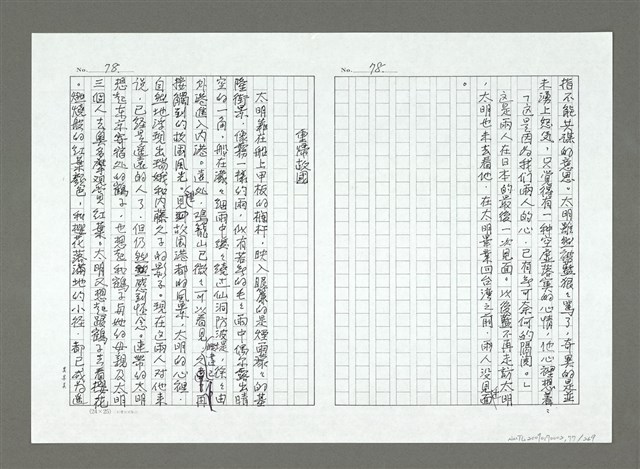 No. 78.
指不能共謀的意思。太明雖然被藍狠狠罵了，奇異的是並
未湧上怒氣，只覺得有一種空虛落寞的心情，他心裡想著：
「這是因為我們兩人的心，已有無可奈何的隔閡。」
這是兩人在日本的最後一次見面。以後藍不再走訪太明
，太明也未去看他，在太明畢業回台灣之前，兩人沒見面
。
No. 78.
傷燐故國
太明靠在船上甲板的欄杆，映入眼簾的是煙雨濛濛的基
隆街景，像霧一樣的雨，似有若無的毛毛雨中偶爾露出晴
空的一角，船在濛濛細雨中緩緩繞過仙洞防波堤徐徐由
外港進入內港。遠處，鳴龍山已微微可以看見
接觸到的故國風光。見到故國港都的風景，太明的心裡
自然地浮現出瑞娥和內藤久子的影子。現在這兩人對他來
說，已經是遙遠的人了，但仍然感到懷念。連帶的太明
想起東京寄宿處的鶴子，也想起和鶴子與她的母親及太明
三個人去奧多摩觀賞紅葉。太明又想起跟鶴子去看櫻花
。燃燒般的紅葉艷色，和櫻花落滿地的小徑，都已成為遙
(24×25)